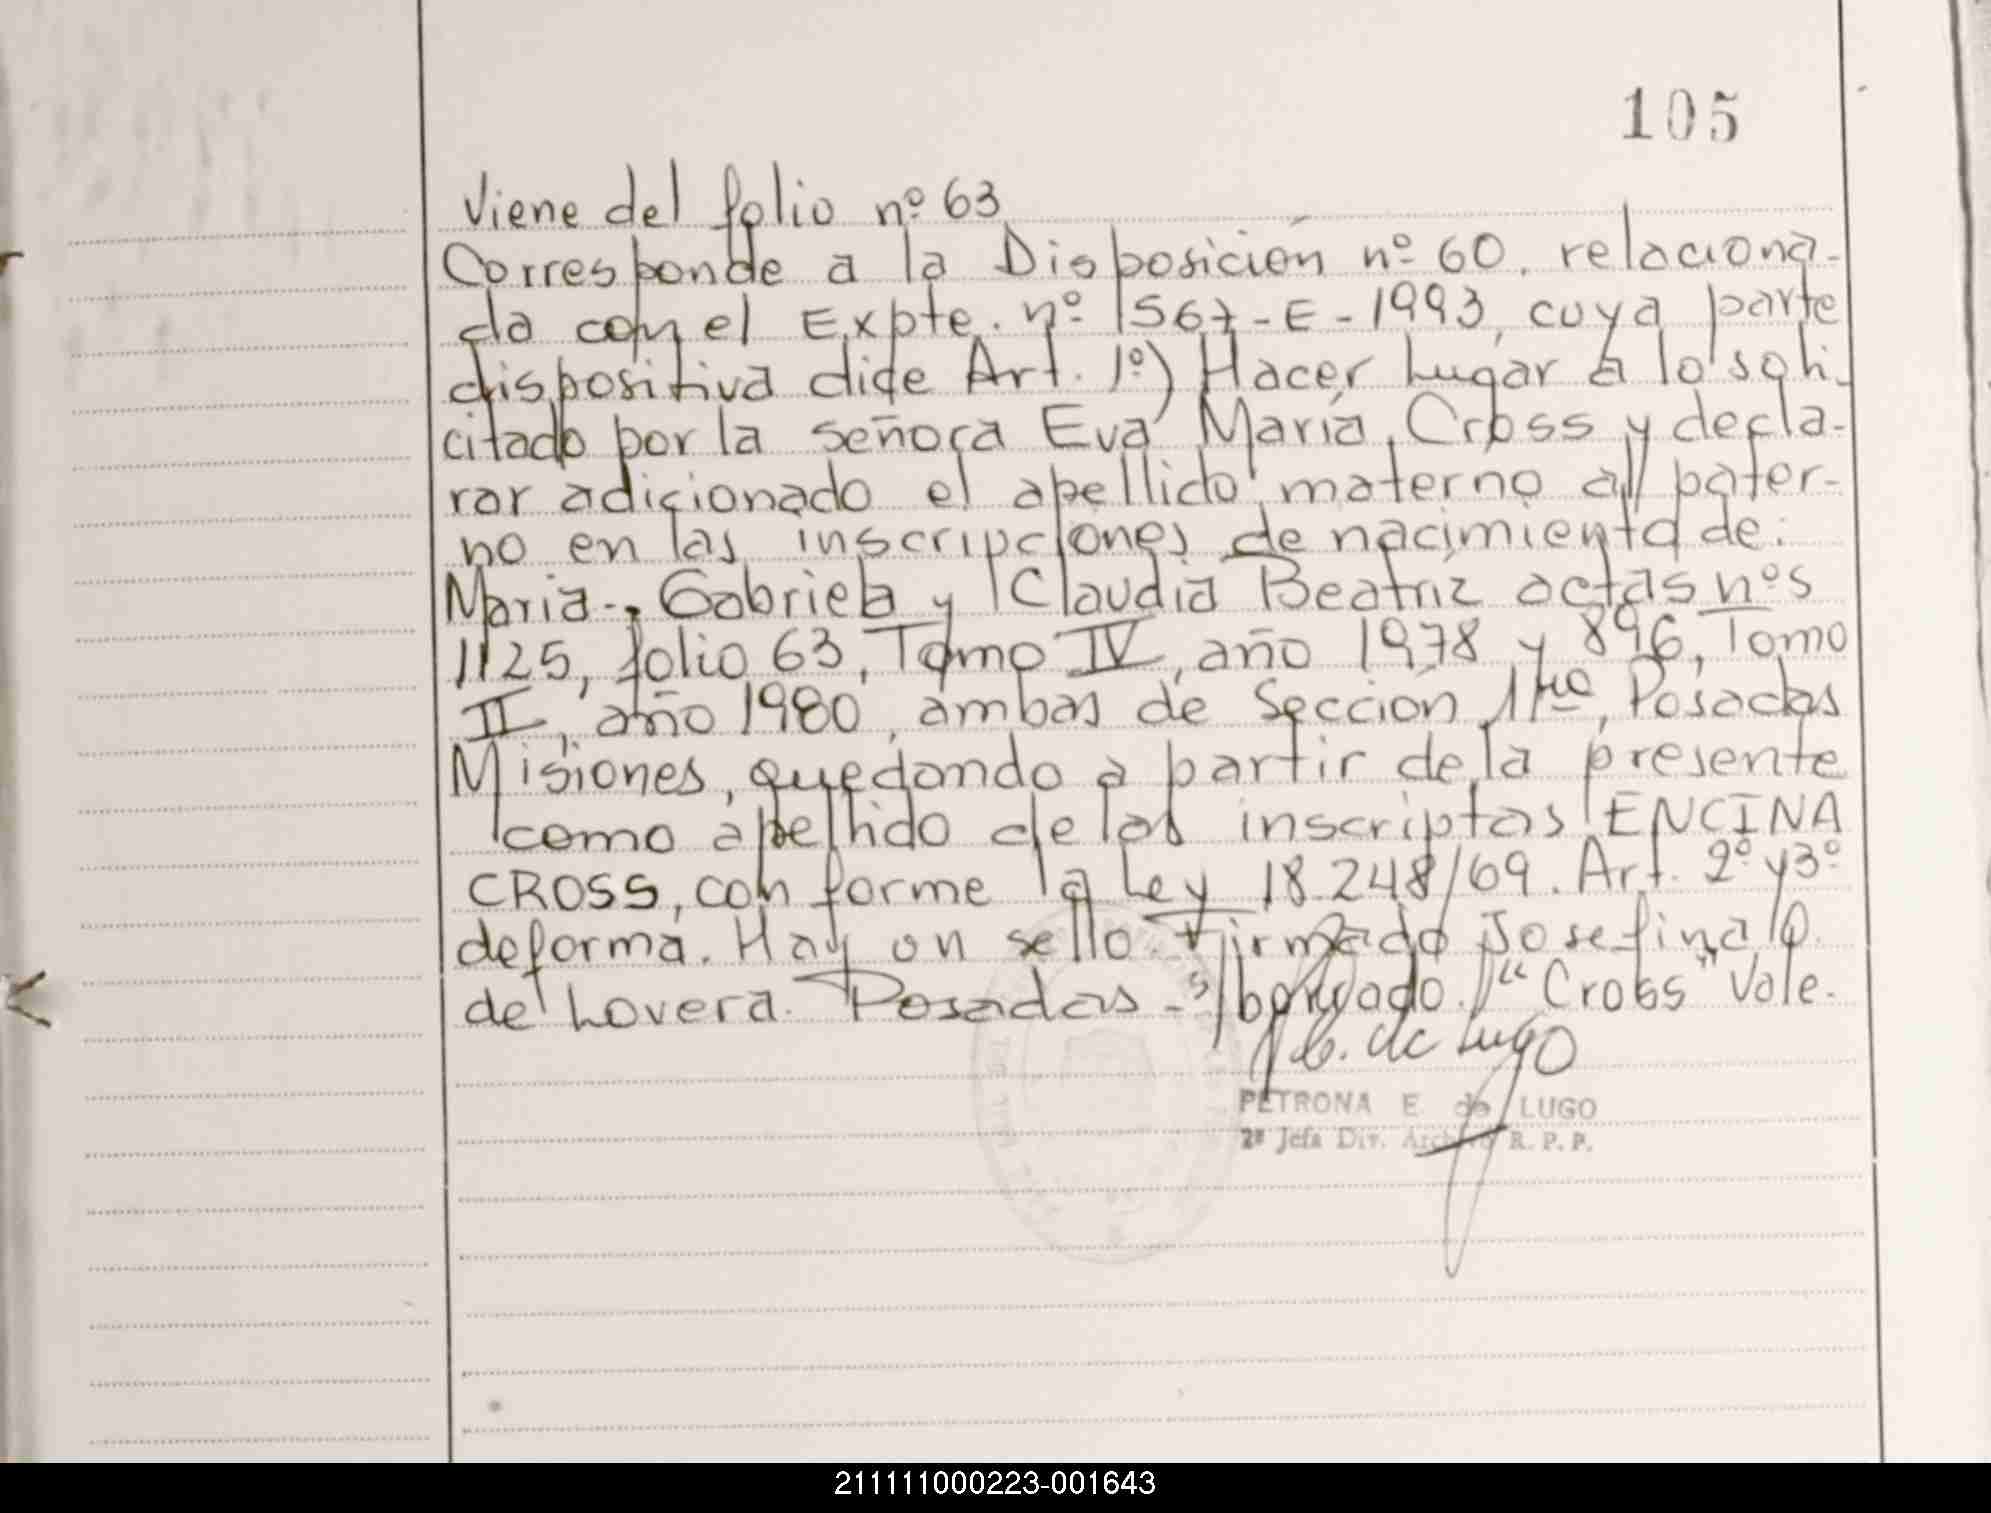 105
Viene del folio nº 63
Corresponde a la Disposición nº 60, relaciona-
da con el Expte. nº 1567-E-1993, cuya parte
dispositiva dice Art. 1º) Hacer Lugar a lo soli-
citado por la señora Eva María Cross y decla-
rar adicionado el apellido materno al pater-
no en las inscripciones de nacimiento de:
Maria-, Gabriela y Claudia Beatriz actas nºs
1125, folio 63, Tomo IV, año 1978 y 896, Tomo
II, año 1980, ambas de Sección 1ra, Posadas
Misiones, quedando a partir de la presente
como apellido de las inscriptas ENCINA
CROSS, conforme la Ley 18.248/69. Art. 2º y 3º
deforma. Hay un sello. Firmado Josefina Q.
de Lovera. Posadas - S/borrado. "Cross" Vale.
de Lugo
PETRONA E. de LUGO
2ª Jefa Div. Archivo R. P. P.
211111000223-001643